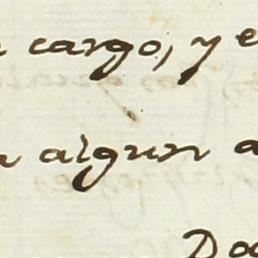 cargo, y e
algun a
Do